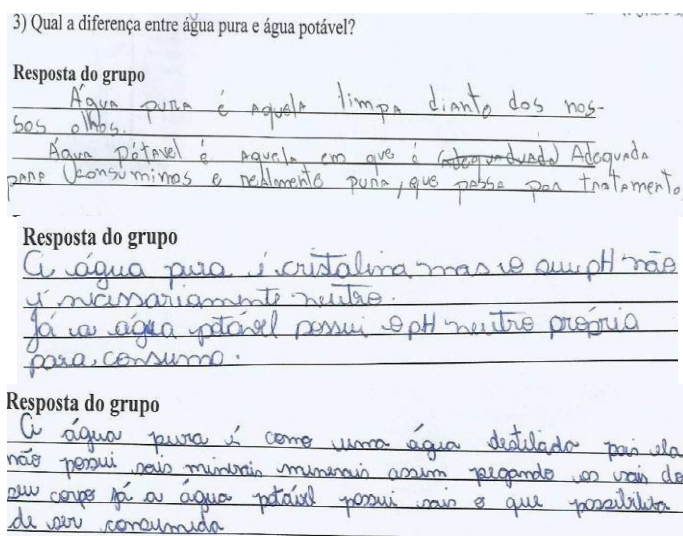 3) Qual a diferença entre água pura e água potável?
Resposta do grupo
Água pura é aquela limpa diante dos nos-
sos olhos.
Água Pótavel é aquela em que é Adequada
para consumimos e realmente pura, que passa por tratamento
Resposta do grupo
A água pura é cristalina mas o seu pH não
é necessariamente neutro.
Já a água potável possui o pH neutro própria
para, consumo.
Resposta do grupo
A água pura é como uma água destilada pois ela
não possui sais minerais assim pegando os sais do
seu corpo já a água potável possui sais o que possibilita
de ser consumida